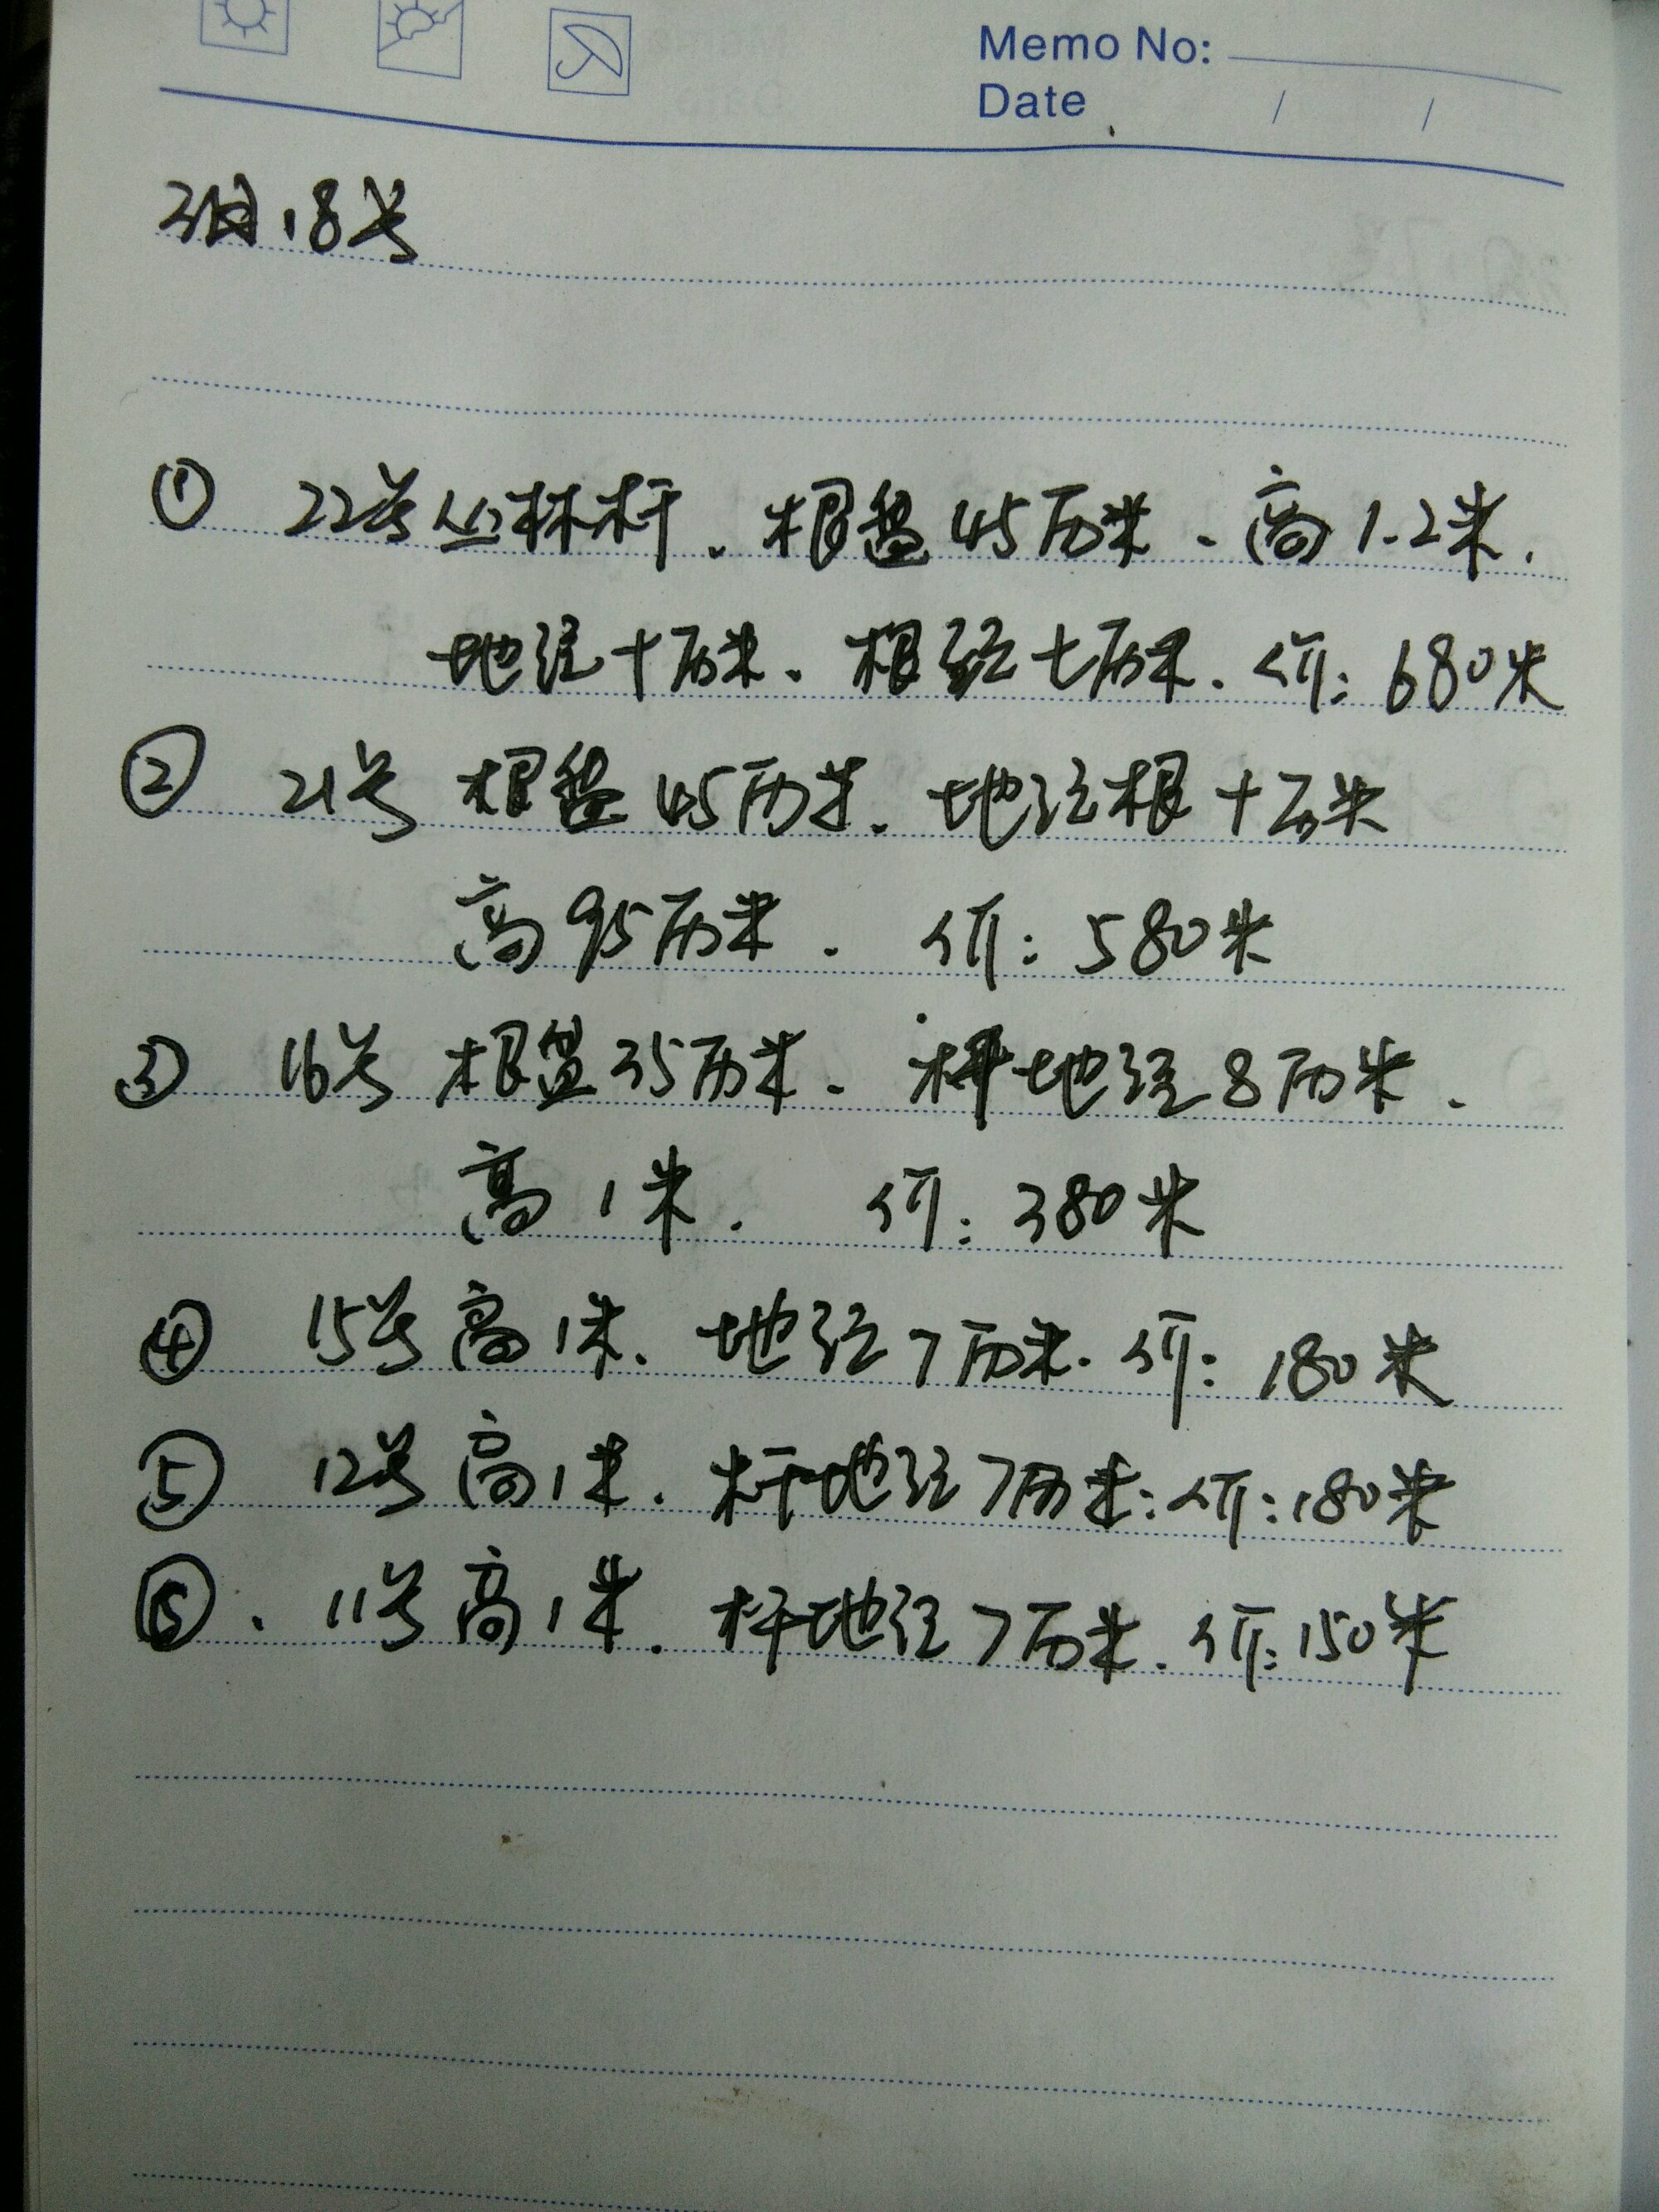 Memo No:
Date / /
3月18号
① 22号丛林杆、根盘45厘米、高1.2米.
地径十厘米、根径七厘米.价:680米
② 21号 根盘45厘米.地径根十厘米
高95厘米.价:580米
③ 16号 根盘35厘米.杆地径8厘米.
高1米.价:380米
④ 15号高1米.地径7厘米.价:180米
⑤ 12号高1米.杆地径7厘米:价:180米
⑥.11号高1米.杆地径7厘米.价:150米